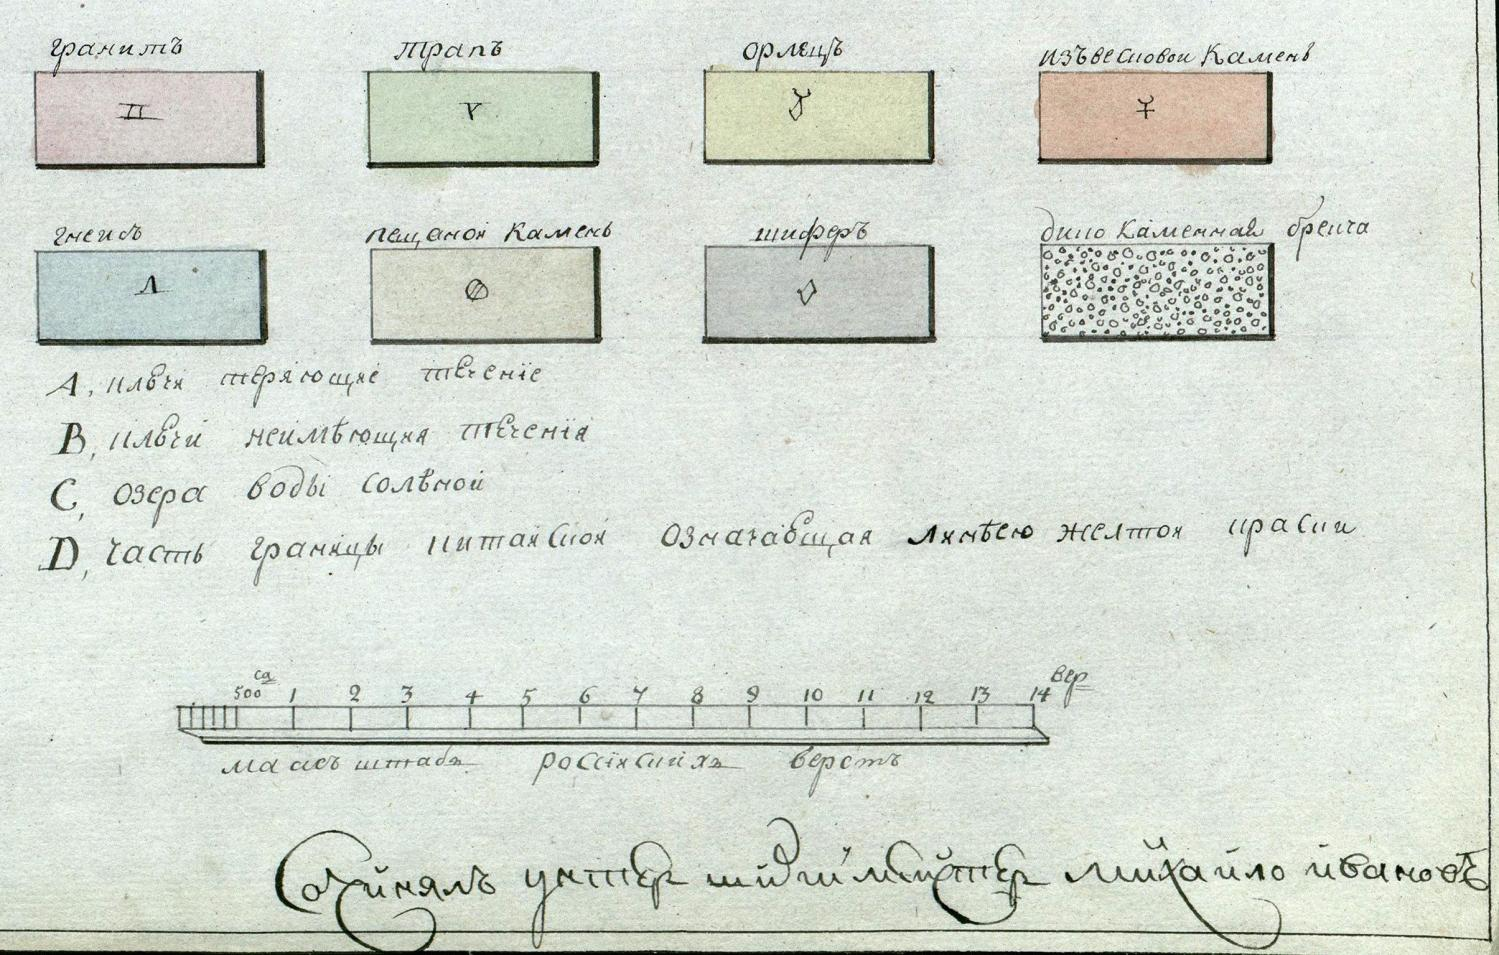 гранитъ
трапъ
орлецъ
изъвесковои Камень
гнеисъ
пещаной Камень
шиферъ
дико Каменная бреича
A, ключи теряющие течение
B, ключи неимѣющия течения
C, озера воды солѣной
D, часть границы китайской означавщая линѣею желтой краски
500 са 1 2 3 4 5 6 7 8 9 10 11 12 13 14 вер
маасъ штабъ россiйскихъ верстъ
Сочинялъ унтер шихтмейстер михайло ивановъ